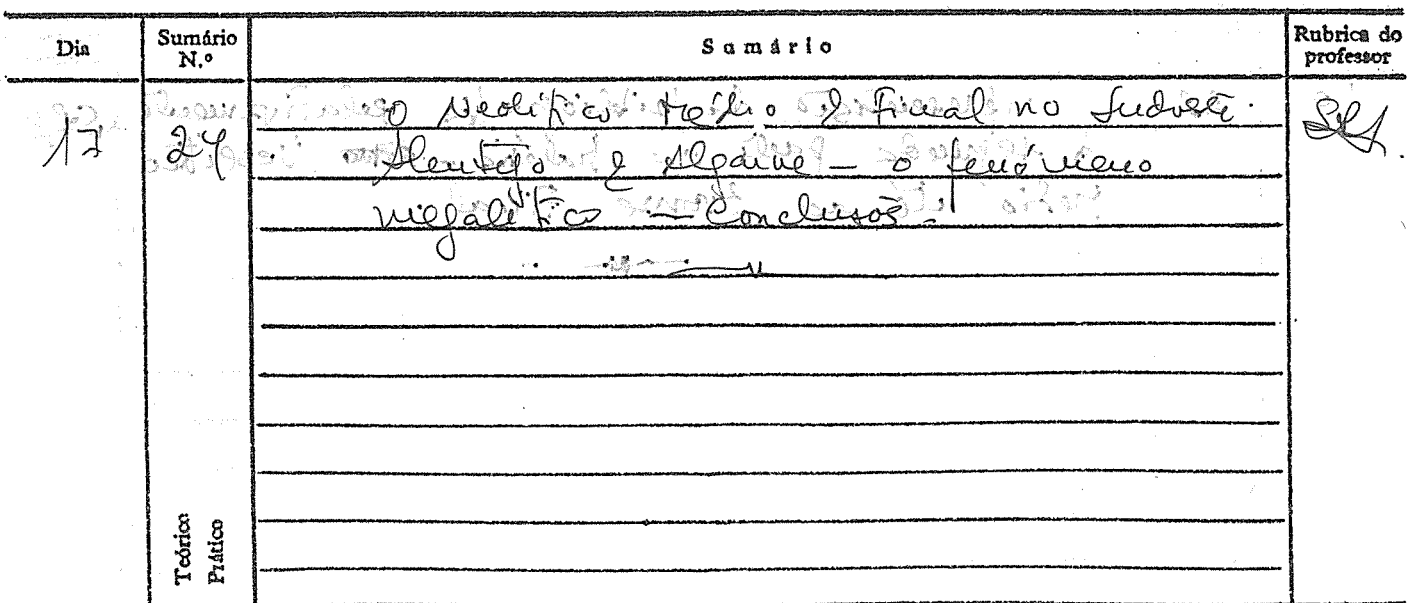 Dia Sumário N.º Sumário Rubrica do professor
17 24 O Neolítico Médio e Final no Sudoeste.
Alentejo e Algarve – o fenómeno
megalítico – Conclusões.
Teórico
Prático